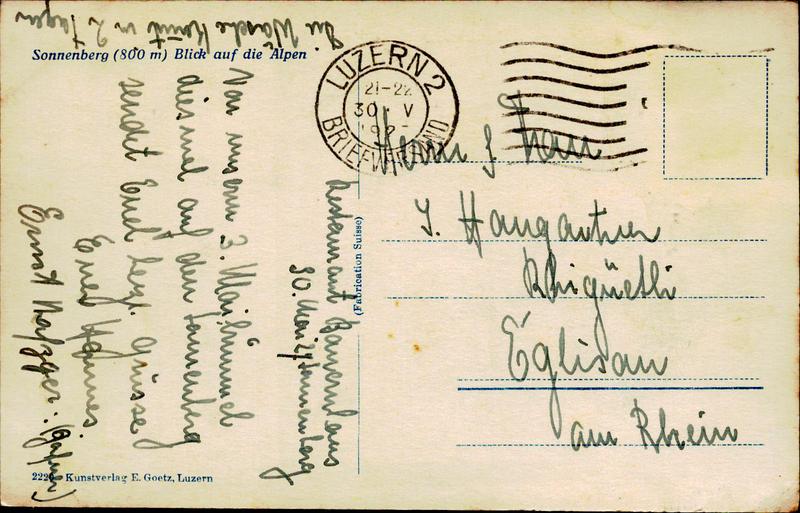 Die Wäsche kommt in 2 Tagen
Sonnenberg (800 m) Blick auf die Alpen
LUZERN 2
21-22
30. V
BRIEFVERSAND
Restaurant
30. Mai
Sonnenberg
Von unserm 3. Maibummel
diesmal auf den Sonnenberg
sendet Euch herzl. Grüsse
Euer Hannes.
Ernst
(Fabrication Suisse)
Herrn & Frau
J. Hangartner
Rhigüetli
Eglisau
am Rhein
Kunstverlag E. Goetz, Luzern